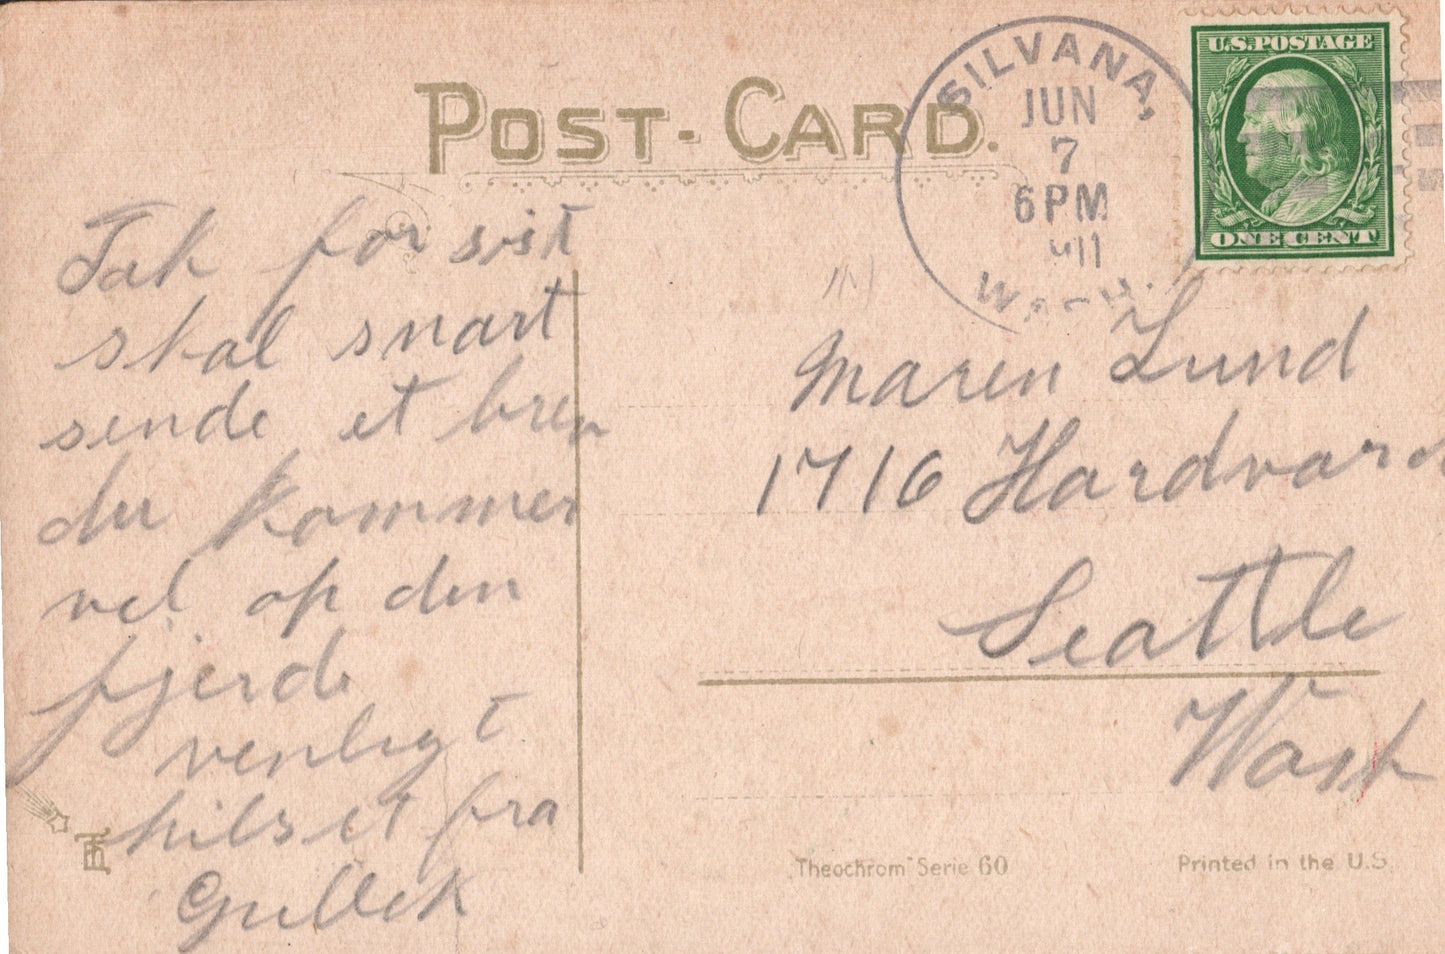 POST-CARD.
SILVANA,
JUN
7
6 PM
WASH.
U.S. POSTAGE
ONE CENT
Tak for sist
skal snart
sende et brev
du kommer
vel op den
fjerde
venligt
hilset fra
Gullek
Maren Lund
1716 Hardvard
Seattle
Wash
Theochrom Serie 60
Printed in the U.S.